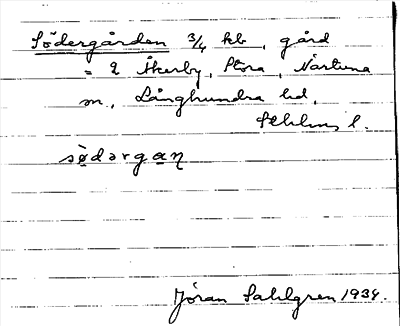 Södergården 3/4 kb, gård
= 2 Åkerby, Stora, Närtuna
sn., Långhundra hd,
Sthlms l.
sødərgaɳ
Jöran Sahlgren 1934.